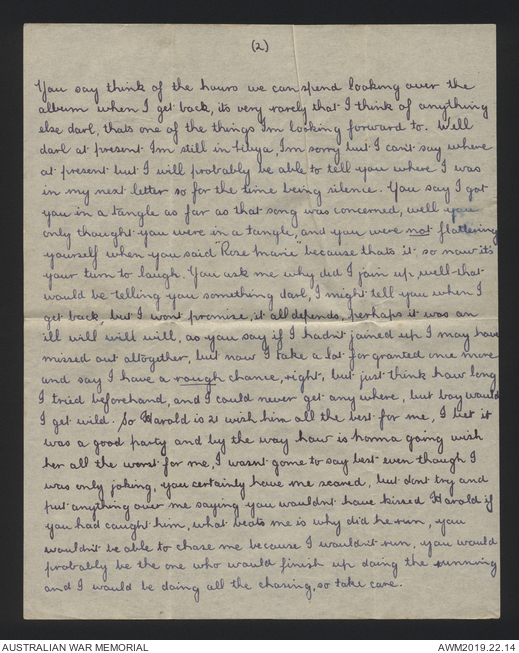 (2)
You say think of the hours we can spend looking over the
album when I get back, its very rarely that I think of anything
else darl, thats one of the things Im looking forward to. Well
darl at present Im still in Libya, Im sorry but I cant say where
at present but I will probably be able to tell you where I was
in my next letter so for the time being silence. You say I got
you in a tangle as far as that song was concerned, well you
only thought you were in a tangle, and you were not flattering
yourself when you said "Rose Marie" because thats it so now its
your turn to laugh. You ask me why did I join up, well that
would be telling you something darl, I might tell you when I
get back, but I wont promise, it all depends, perhaps it was an
ill will will will, as you say if I hadnt joined up I may have
missed out altogether, but now I take a lot for granted once more
and say I have a rough chance, right, but just think how long
I tried beforehand, and I could never get any where, but boy would
I get wild. So Harold is 21 wish him all the best for me, I bet it
was a good party and by the way how is horma going wish
her all the worst for me, I wasnt gome to say best even though I
was only joking, you certainly have me scared, but dont try and
put anything over me saying you wouldnt have kissed Harold if
you had caught him, what beats me is why did he run, you
wouldnt be able to chase me because I wouldnt run, you would
probably be the one who would finish up doing the running
and I would be doing all the chasing, so take care.
AUSTRALIAN WAR MEMORIAL
AWM2019.22.14